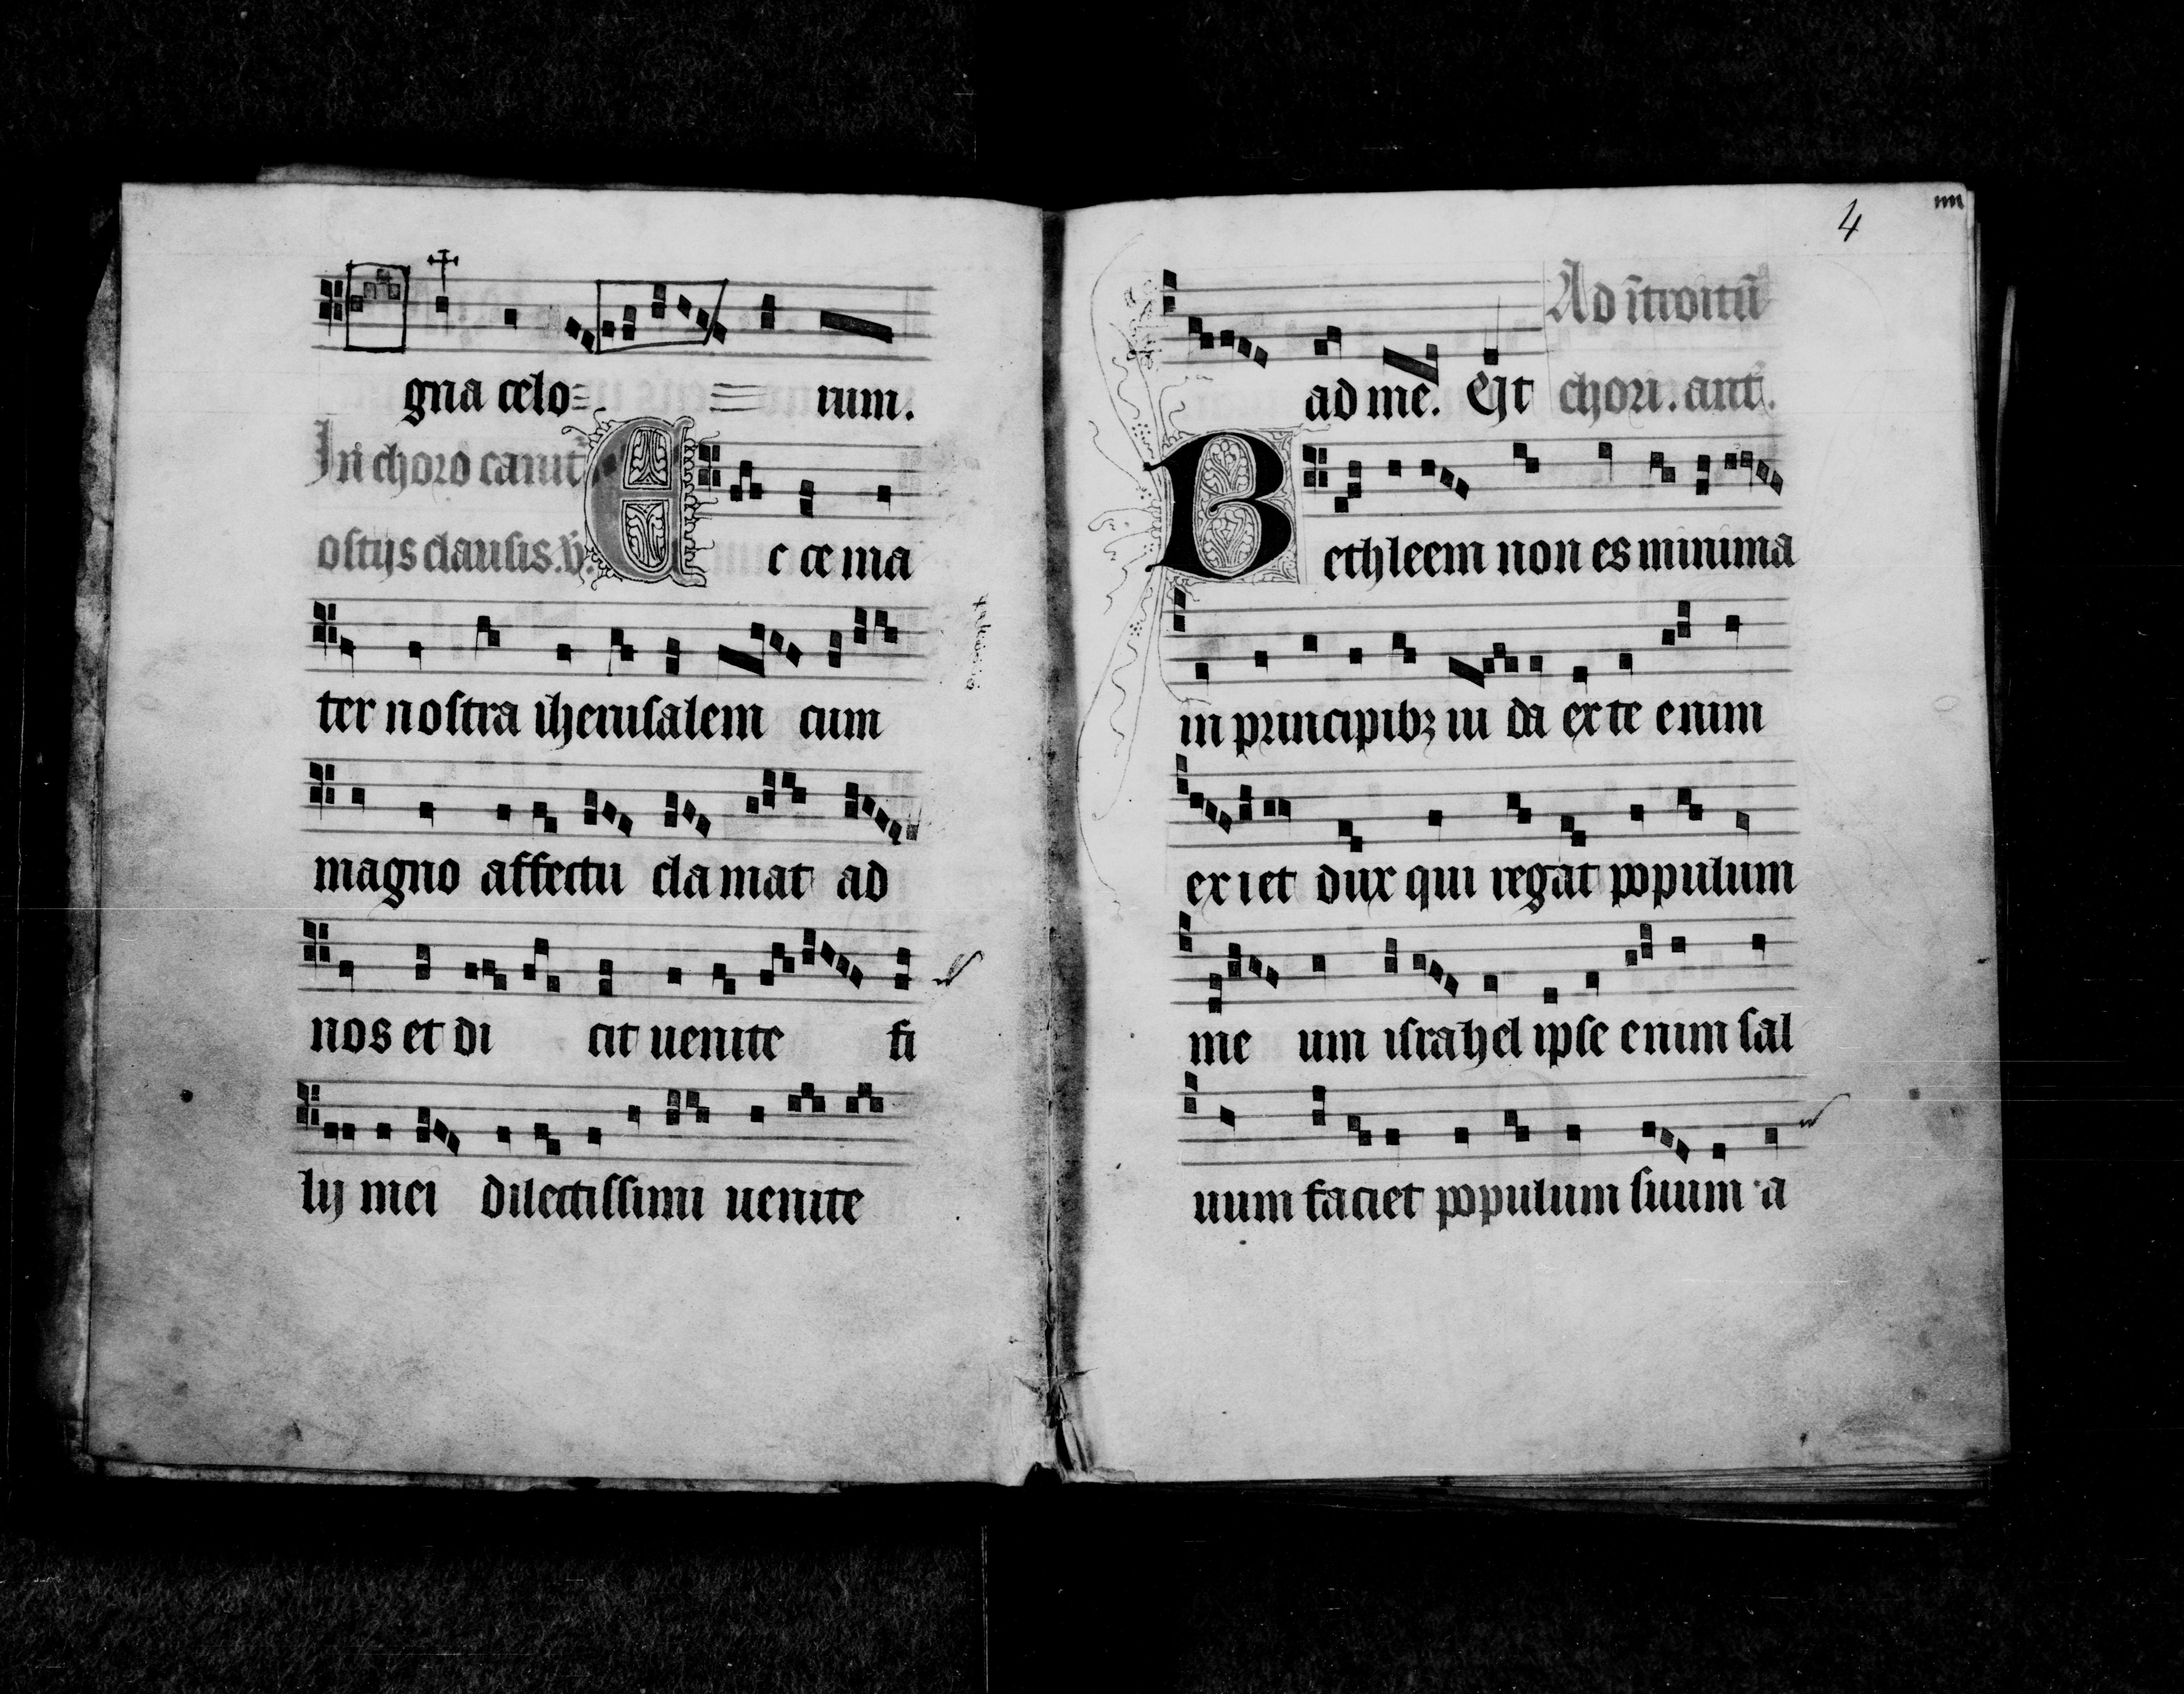 gna celo= = rum.
In choro canit᷑
ostijs clausis. v̄. E c ce ma
ter nostra iherusalem cum
magno affectu clamat ad
nos et di cit uenite fi
lij mei dilectissimi uenite
4
iiii
Ad ītroitū
ad me. Et chori. ant.
Bethleem non es minima
in principibꝫ iu da ex te enim
exiet dux qui regat populum
me um israhel ipse enim sal
uum faciet populum suum · a